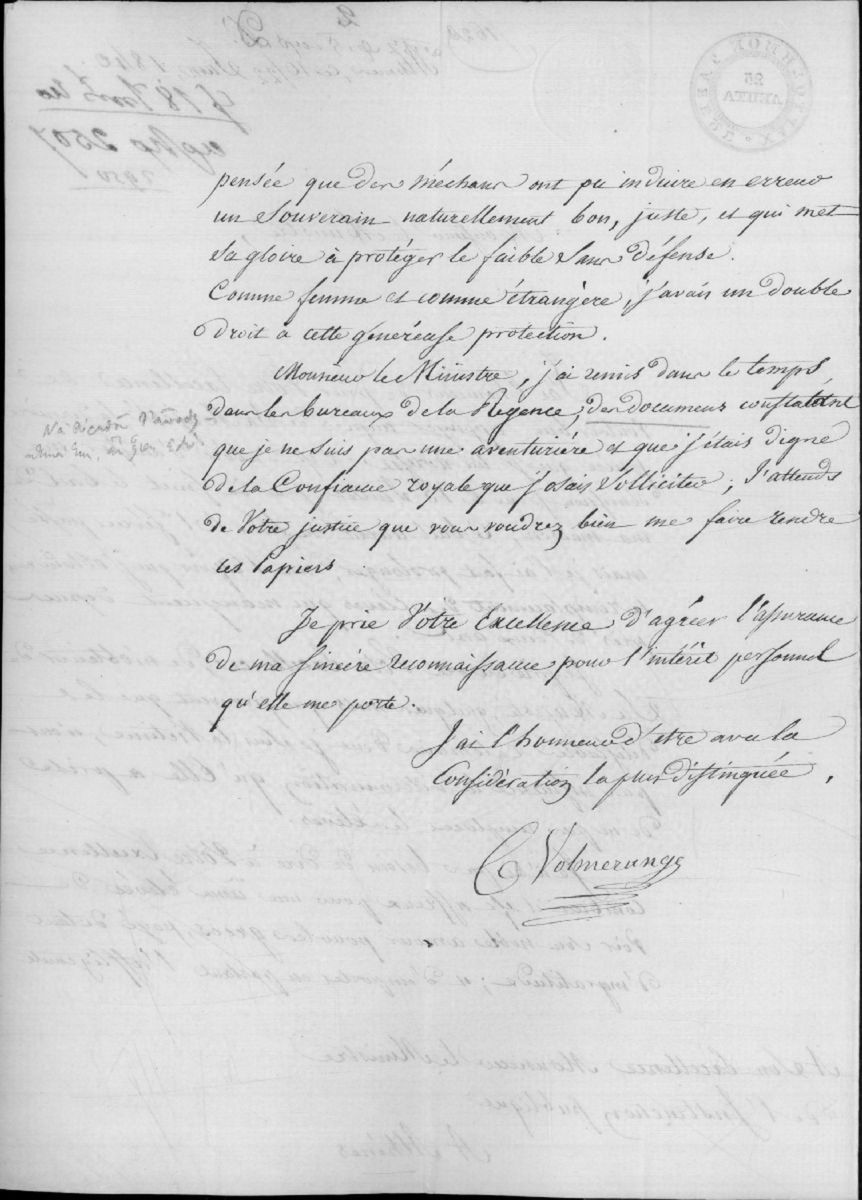 pensée que des méchans ont pu induire en erreur
un Souverain naturellement bon, juste, et qui met
sa gloire à protéger le faible sans défense.
Comme femme et comme étrangère, j'avais un double
droit à cette généreuse protection.
Monsieur le Ministre, j'ai remis dans le temps,
dans les bureaux de la Régence, des documens constatant
que je ne suis pas une aventurière et que j'étais digne
de la Confiance royale que j'osais solliciter ; J'attends
de Votre justice que vous voudrez bien me faire rendre
ces Papiers
Je prie Votre Excellence d'agréer l'assurance
de ma sincère reconnaissance pour l'intérêt personnel
qu'elle me porte.
J'ai l'honneur d'etre avec la
Considération la plus distinguée,
C Volmerange